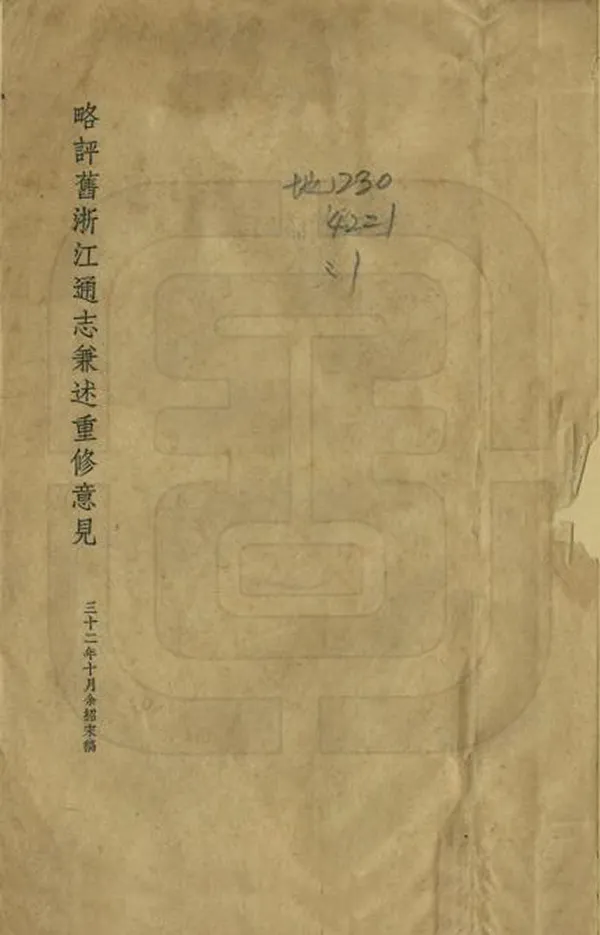 地1230
422=1
:1
略評舊浙江通志兼述重修意見
三十二年十月余紹宋稿